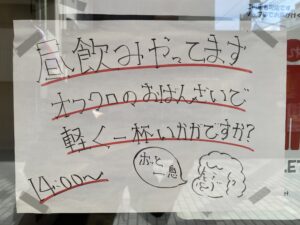 昼飲みやってます
オフクロのおばんざいで
軽く一杯いかがですか?
ホッと
一息
14:00〜